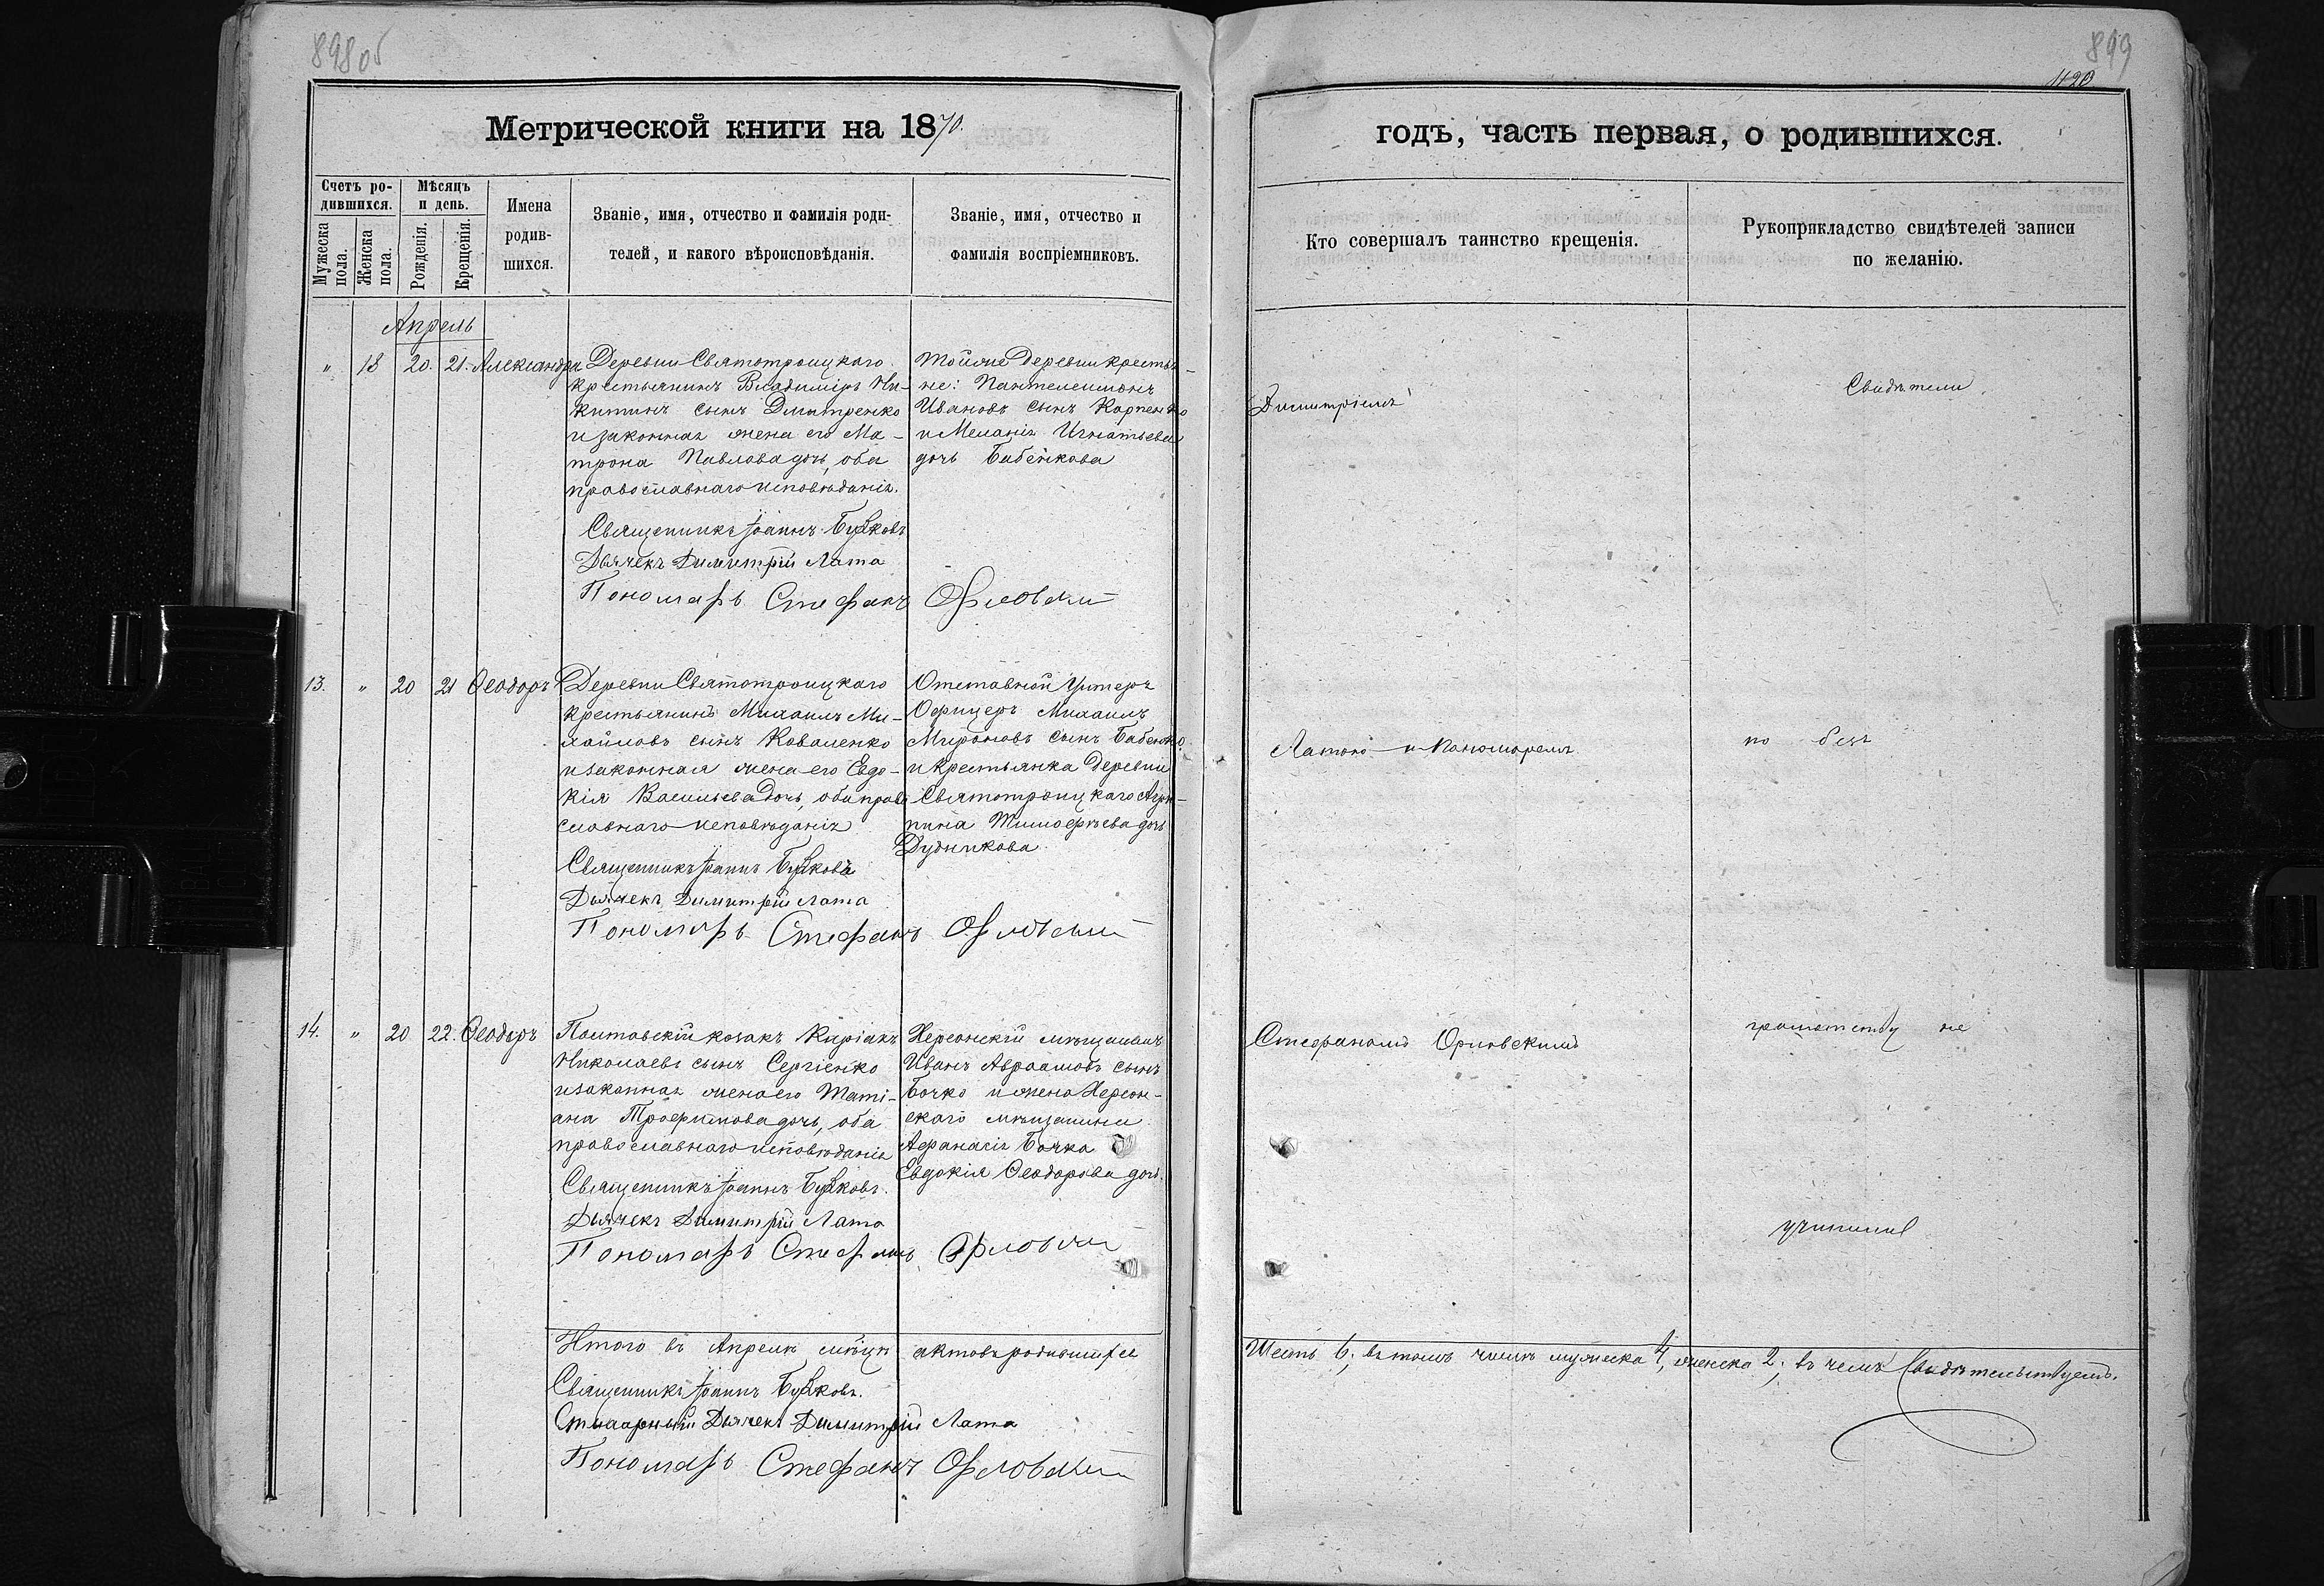 898 об
899
420
Метрической книги на 1870.
годъ, часть первая, о родившихся.
Счетъ родившихся.
Мужеска пола.
Женска пола.
Мѣсяцъ и день.
Рожденія.
Крещенія.
Имена родившихся.
Званіе, имя, отчество и фамилія роди-
телей, и какого вѣроисповѣданія.
Званіе, имя, отчество и
фамилія воспріемниковъ.
Кто совершалъ таинство крещенія.
Рукоприкладство свидѣтелей записи
по желанію.
Апрель
" 13 20. 21. Александра
Деревни Святотроицкаго
крестьянинъ Владиміръ Ни-
китинъ сынъ Дмитренко
и законная жена его Ма-
трона Павлова дочь, оба
православнаго исповѣданія.
Тойже деревни крестья-
не: Пантелеимонъ
Ивановъ сынъ Карпенко
и Меланія Игнатьева
дочь Бабенкова
Димитріемъ
Свидѣтели
Священникъ Іоаннъ
Дьячекъ Димитрій Лата
Пономарь Стефанъ Орловскій
13. " 20 21 Ѳеодоръ
Деревни Святотроицкаго
крестьянинъ Михаилъ Ми-
хайловъ сынъ Коваленко
и законная жена его Евдо-
кія Васильева дочь, оба право
славнаго исповѣданія
Отставной Унтеръ
Офицеръ Михаилъ
Мироновъ сынъ Бабенко
и крестьянка деревни
Святотроицкаго Агри-
пина Тимофѣева дочь
Дудникова
Латою и пономаремъ
по безъ
Священникъ Іоаннъ
Дьячекъ Димитрій Лата
Пономарь Стефанъ Орловскій
14. " 20 22. Ѳеодоръ
Полтавскій козакъ Киріакъ
Николаевъ сынъ Сергіенко
и законная жена его Таті-
ана Трофимова дочь, оба
православнаго исповѣданія
Херсонскій мѣщанинъ
Иванъ Авраамовъ сынъ
Бочко и жена Херсон-
скаго мѣщанина
Афанасія Бочка
Евдокія Ѳеодорова дочь.
Стефаномъ Орловскимъ
грамотству не
учинили
Священникъ Іоаннъ
Дьячекъ Димитрій Лата
Пономарь Стефанъ Орловскій
Итого въ Апрелѣ мѣсяцѣ актовъ родившихся
Шесть 6; въ томъ числѣ мужеска 4, женска 2; въ чемъ свидѣтельствуемъ.
Священникъ Іоаннъ
Дьячекъ Димитрій Лата
Пономарь Стефанъ Орловскій